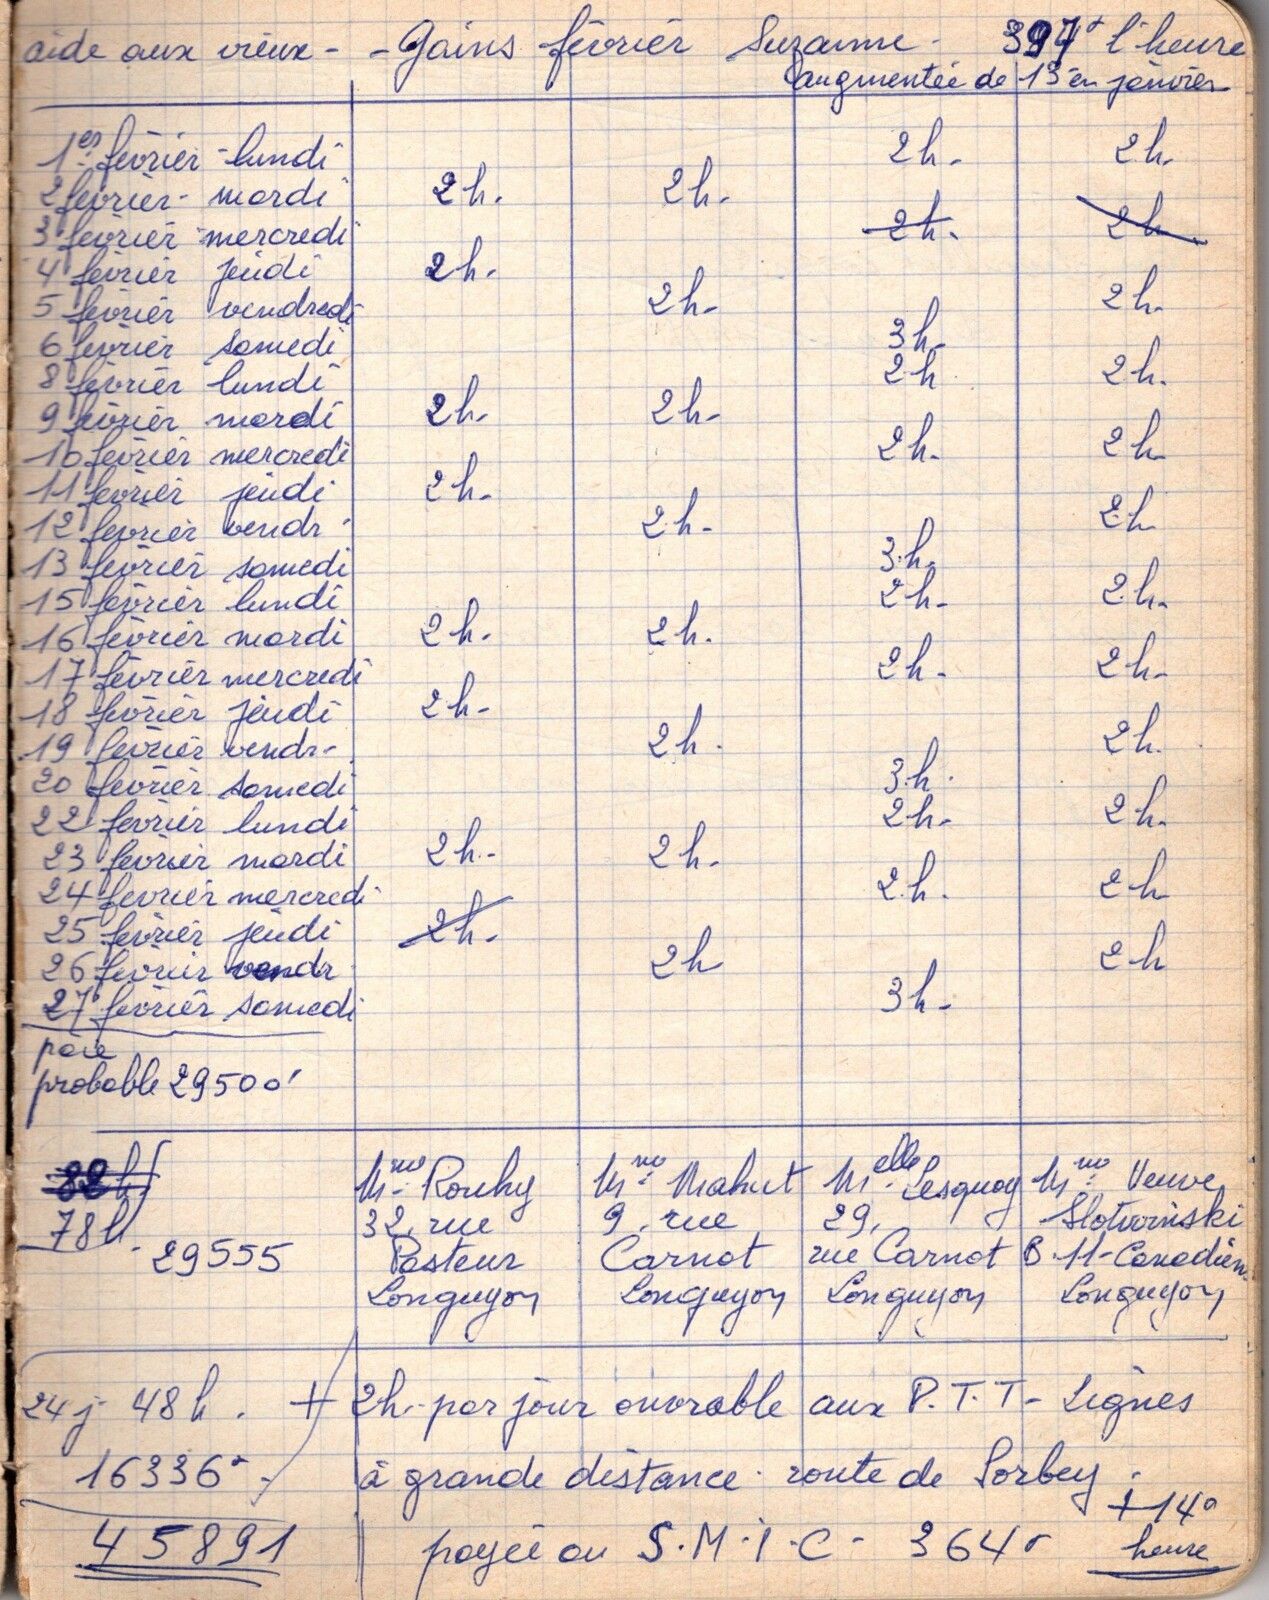 aide aux vieux - - Gains février Suzanne - 397° l'heure
augmentée de 13 en janvier
1er février lundi 2h. 2h.
2 février - mardi 2h. 2h.
3 février mercredi 2h. 2h
4 février jeudi 2h.
5 février vendredi 2h. 2h.
6 février samedi 3h.
8 février lundi 2h 2h.
9 février mardi 2h. 2h.
10 février mercredi 2h. 2h
11 février jeudi 2h.
12 février vendr 2h. 2h
13 février samedi 3h.
15 février lundi 2h. 2h.
16 février mardi 2h. 2h.
17 février mercredi 2h. 2h.
18 février jeudi 2h.
19 février vendr- 2h. 2h.
20 février samedi 3h.
22 février lundi 2h. 2h.
23 février mardi 2h.- 2h.
24 février mercredi 2h. 2h
25 février jeudi 2h.
26 février vendr 2h 2h
27 février samedi 3h.
paie
probable 29500'
82h Mme Rouhy Mme Mahut Melle Lesquoy Mme Veuve
78h 32, rue 9, rue 29, Slotvinski
29555 Pasteur Carnot rue Carnot B. 11 - Canadien
Longuyon Longuyon Longuyon Longuyon
24 j 48h. + 2h - par jour ouvrable aux P.T.T - Lignes
16336 à grande distance. route de Sorbey.
+14°
45891 payée au S.M.I.C - 364 heure